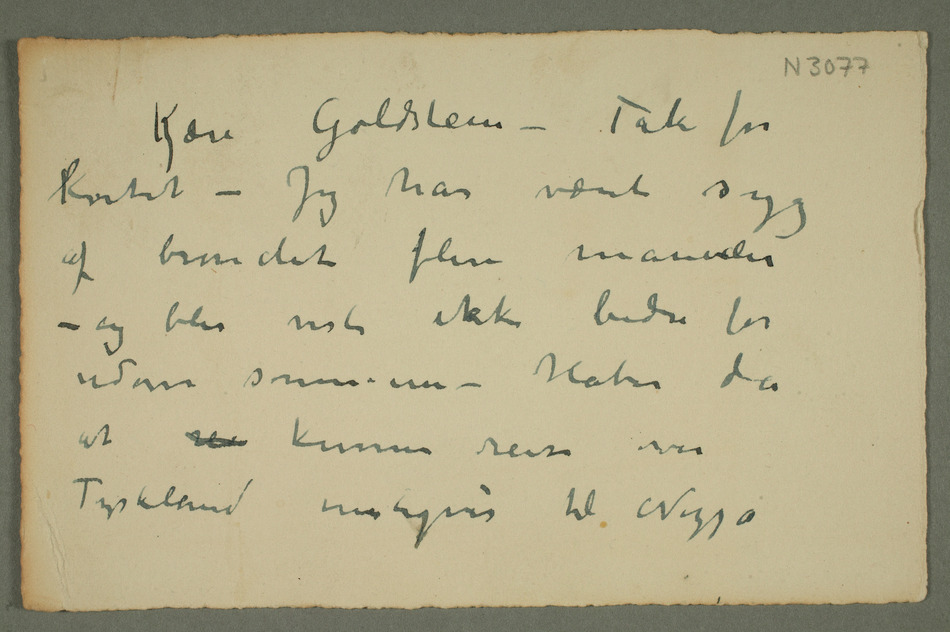 N 3077
Kjære Goldstein – Tak for
Kortet – Jeg har været syg
af bronchit flere maaneder
– og blir visst ikke bedre før
udover sommeren – Haber da
at kunne reise over
Tyskland muligvis til Nizza